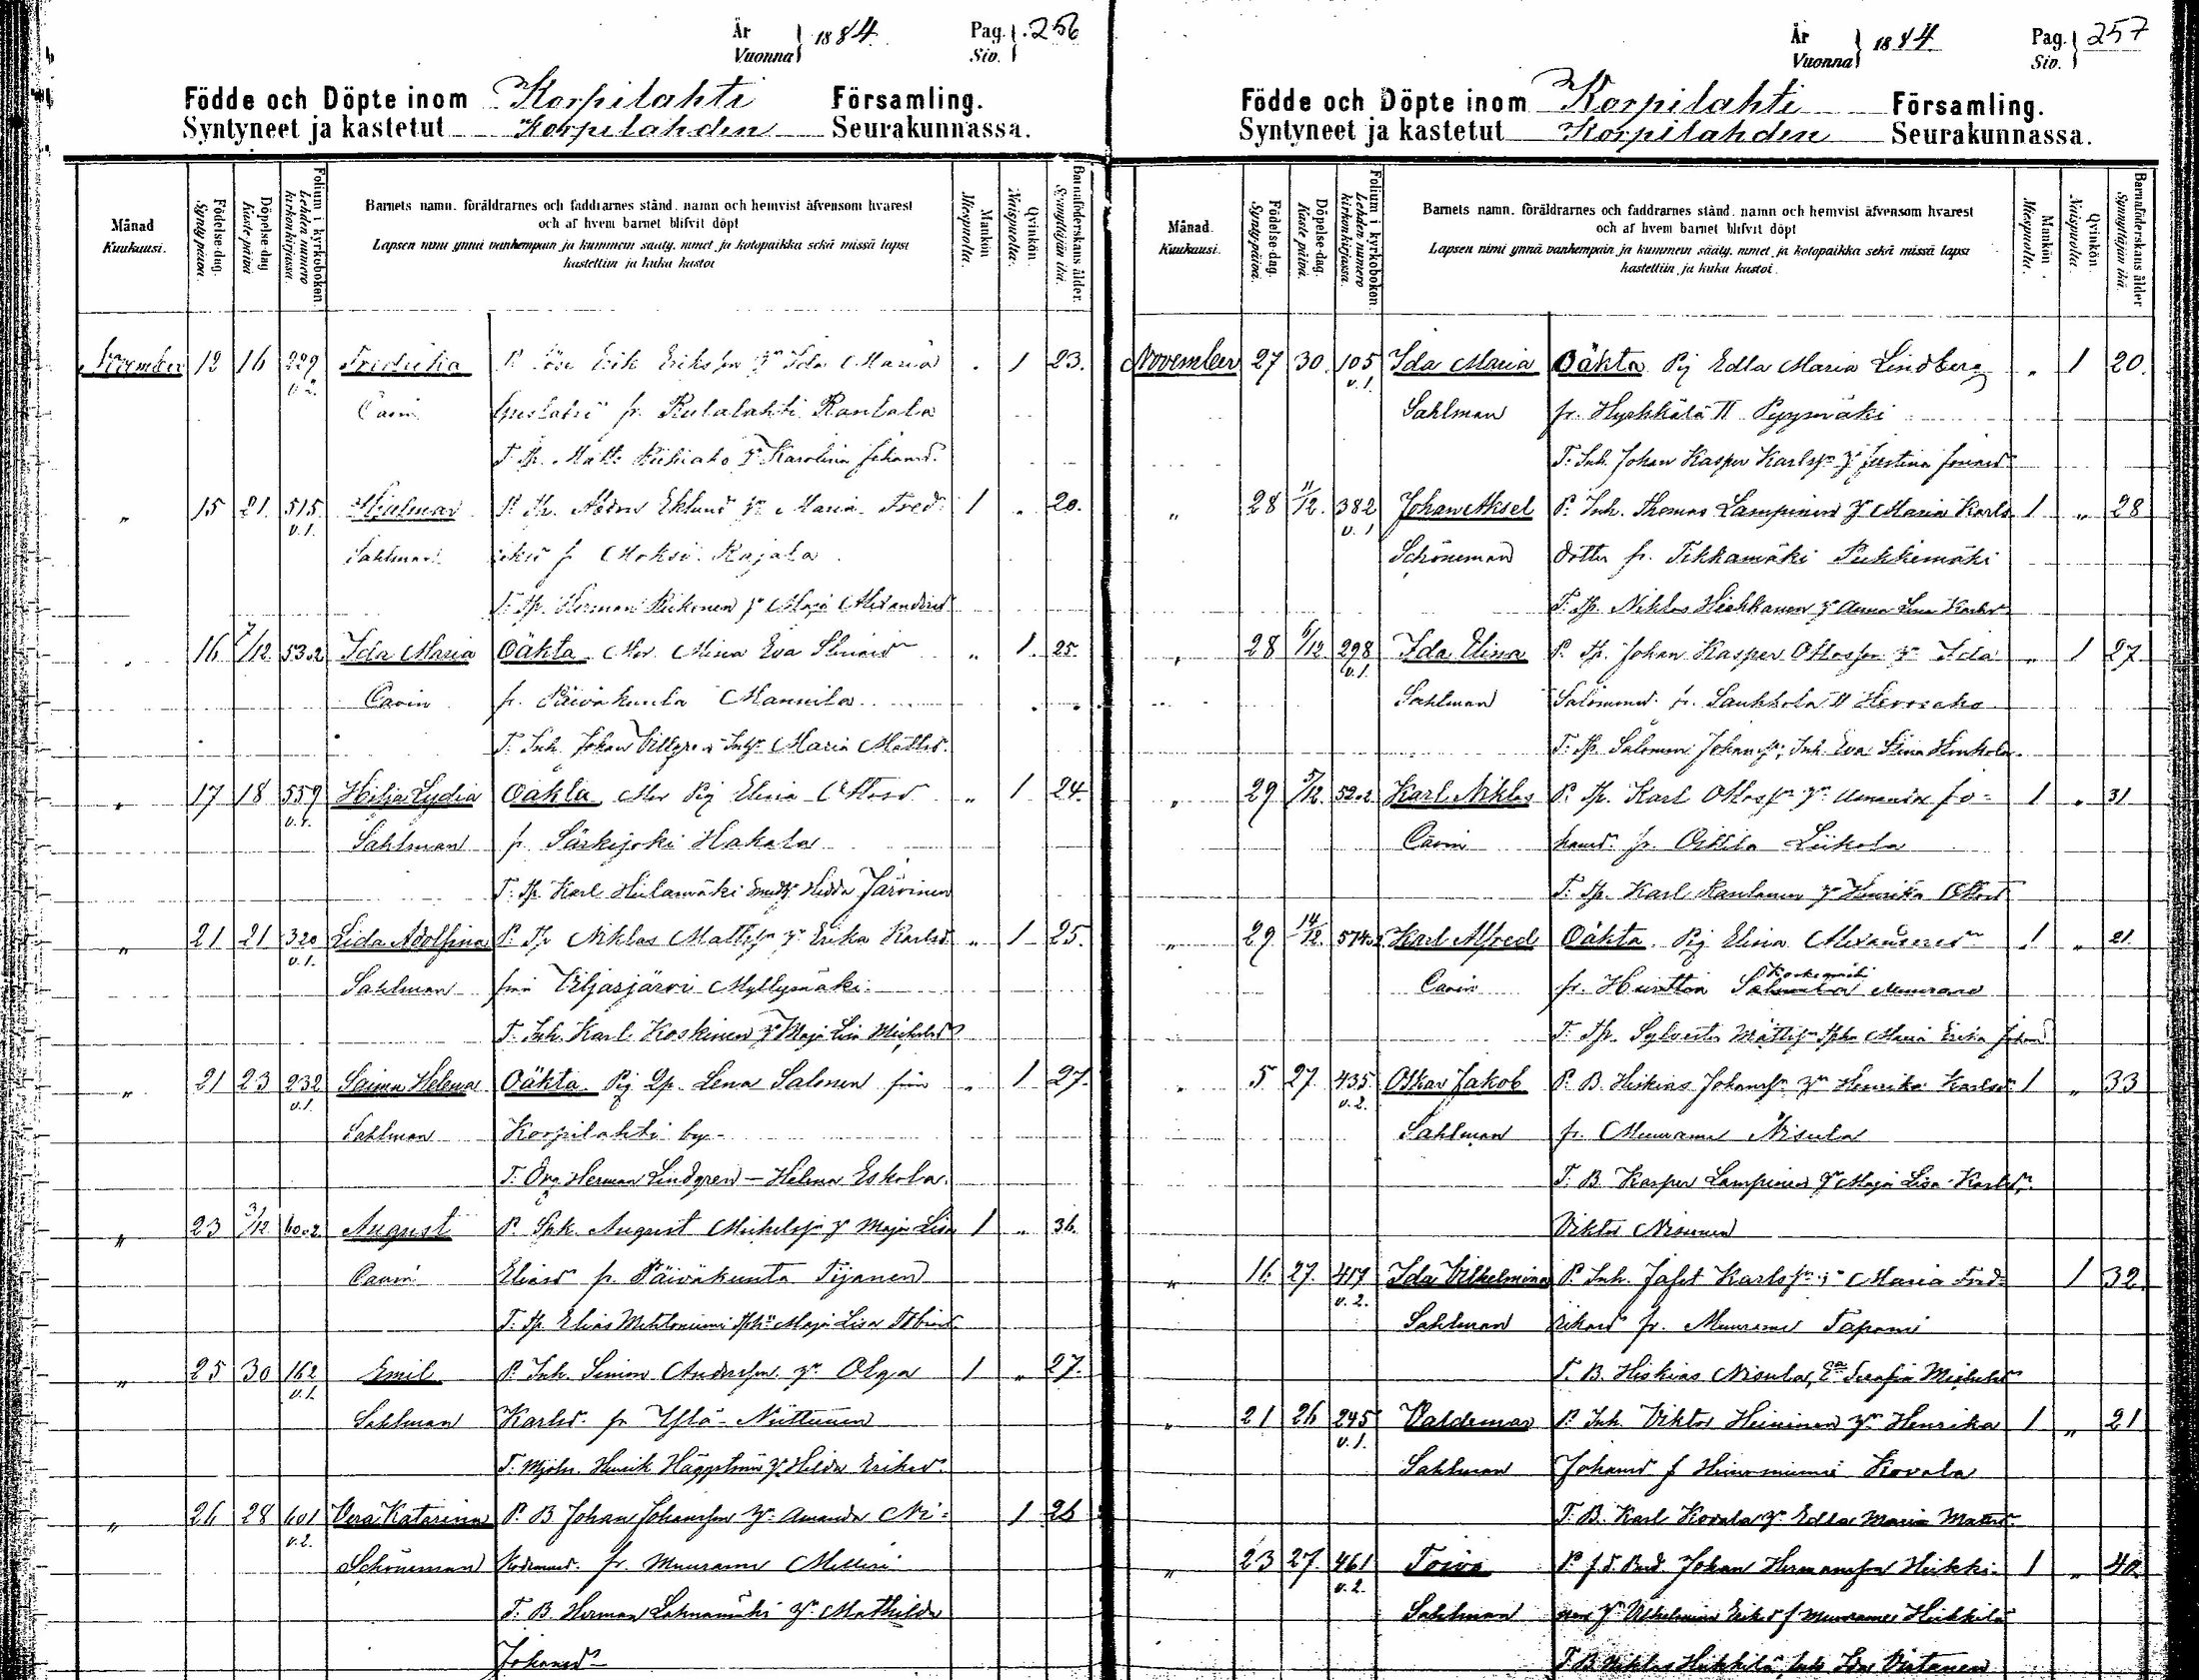 År
Vuonna } 1884.
Pag.
Siv. } 256
Födde och Döpte inom Korpilahti Församling.
Syntyneet ja kastetut Korpilahden Seurakunnassa.
Månad
Kuukausi.
Födelse-dag.
Syntypäivä.
Döpelse-dag
Kastepäivä
Folium i kyrkoboken.
Lehden numero kirkonkirjassa.
Barnets namn, föräldrarnes och faddrarnes stånd, namn och hemvist äfvensom hvarest
och af hvem barnet blifvit döpt
Lapsen nimi ynnä vanhempain ja kummein sääty, nimet ja kotopaikka sekä missä lapsi
kastettiin ja kuka kastoi
Mankön
Miespuolta.
Qvinkön.
Naispuolta.
Barnaföderskans ålder.
Synnyttäjän ikä.
November 12 16 229 Fredrika Erik Eriksson Ida Maria 1 23.
v. 2.
Cavén fr. Rutalahti Rantala
T. Sp. Matts Karolina Johansd.
" 15 21 515 Hjalmar Eklund Maria Fred- 1 " 20.
v. 1.
Sahlman fr. Moksi Rajala
T. Sp. Herman Maja Alexandersd
" 16 7/12 53.2 Ida Maria Oäkta Mor. Mina Eva " 1 25.
Cavén fr. Päiväkunta Mannila
T. Inh. Johan Maria Mattsd.
" 17 18 559 Hilja Lydia Oäkta Mor Pig Elina Ottosd " 1 24.
v. 1.
Sahlman fr. Särkijoki Hakala
T. Sp. Karl Hiilamäki Hedda Järvinen
" 21 21 320 Lida Adolfina P. Sp. Niklas Mattsson Erika Karlsd. " 1 25.
v. 1.
Sahlman från Viljasjärvi Myllymäki.
T. Inh. Karl Koskinen Maja Lisa Michelsd
" 21 23 232 Saima Helena Oäkta Pig Lena Salonen från " 1 27.
v. 1.
Sahlman Korpilahti by.
T. Herman Lindgren – Helena Eskola.
" 23 3/12 60.2 August P. Spk. August Michelsson Maja Lisa 1 " 36.
Cavén Eliasd fr. Päiväkunta Tijanen
T. Sp. Elias Mehtoniemi Maja Lisa
" 25 30 162 Emil P. Inh. Simon Andersson Olga 1 " 27.
v. 1.
Sahlman Karlsd. fr. Ylä- Niittunen
T. Henrik Häggström Hilda Eriksd.
" 26 28 601 Vera Katarina P. B. Johan Johansson Amanda Ni- 1 26
v. 2.
Schöneman kodemusd. fr. Muurame
T. B. Herman Lahnamäki Mathilda
Johansd
År
Vuonna } 1884.
Pag.
Siv. } 257
Födde och Döpte inom Korpilahti Församling.
Syntyneet ja kastetut Korpilahden Seurakunnassa.
Månad.
Kuukausi.
Födelse-dag.
Syntypäivä.
Döpelse-dag.
Kastepäivä.
Folium i kyrkoboken.
Lehden numero kirkonkirjassa.
Barnets namn, föräldrarnes och faddrarnes stånd, namn och hemvist äfvensom hvarest
och af hvem barnet blifvit döpt
Lapsen nimi ynnä vanhempain ja kummein sääty, nimet ja kotopaikka sekä missä lapsi
kastettiin ja kuka kastoi.
Mankön.
Miespuolta.
Qvinkön.
Naispuolta.
Barnaföderskans ålder
Synnyttäjän ikä.
November 27 30. 105 Ida Maria Oäkta Pig Edla Maria Lindberg " 1 20.
v. 1.
Sahlman fr. Hyrkkälä II Pyysmäki
T. Inh. Johan Kasper Karlsson Justina
" 28 11/12. 382 Johan Aksel P. Inh. Thomas Lampinen Maria Karls 1 " 28
v. 1
Schöneman dotter fr. Tikkamäki Pukkimäki
T. Sp. Niklas Anna Lena Karlsd
" 28 6/12 298 Ida Elina P. Sp. Johan Kasper Ottosson Ida " 1 27
v. 1.
Sahlman Salomonsd. fr. Saukkola II
T. Sp. Salomon Johansson, Inh. Eva Stina
" 29 5/12. 52.2 Karl Niklas P. Sp. Karl Ottosson Amanda Jo- 1 " 31
Cavén hansd. fr. Liikola
T. Sp. Karl Rautanen Henrika Ottosd
" 29 14/12. 574.2 Karl Alfred Oäkta Pig Elina Alexandersd 1 " 21.
Cavén fr. Muurame
T. Sp. Sylvester Mattsson Maria Erika Johansd
" 5 27 435 Oskar Jakob P. B. Hiskias Johansson Henrika Karlsd 1 " 33
v. 2.
Sahlman fr. Muurame Nisula
T. B. Kasper Lampinen Maja Lisa Karlsd.
Viktor Nisunen
" 16 27. 417 Ida Vilhelmina P. Inh. Jafet Karlsson Maria Fred- 1 32
v. 2.
Sahlman rikasd fr. Muurame Tapomi
T. B. Hiskias Nisula, Serafia Michelsd
" 21 26 245 Valdemar P. Inh. Viktor Heininen Henrika 1 " 21
v. 1.
Sahlman Johansd f Heinosniemi Kovala
T. B. Karl Kovala Edla Maria Mattsd.
" 23 27. 461 Toivo P. Johan Hermansson Heikki- 1 " 40
v. 2.
Sahlman nen Vilhelmina Eriksd f Muurame Heikkilä
T. B. Niklas Heikkilä, Ida Virtanen